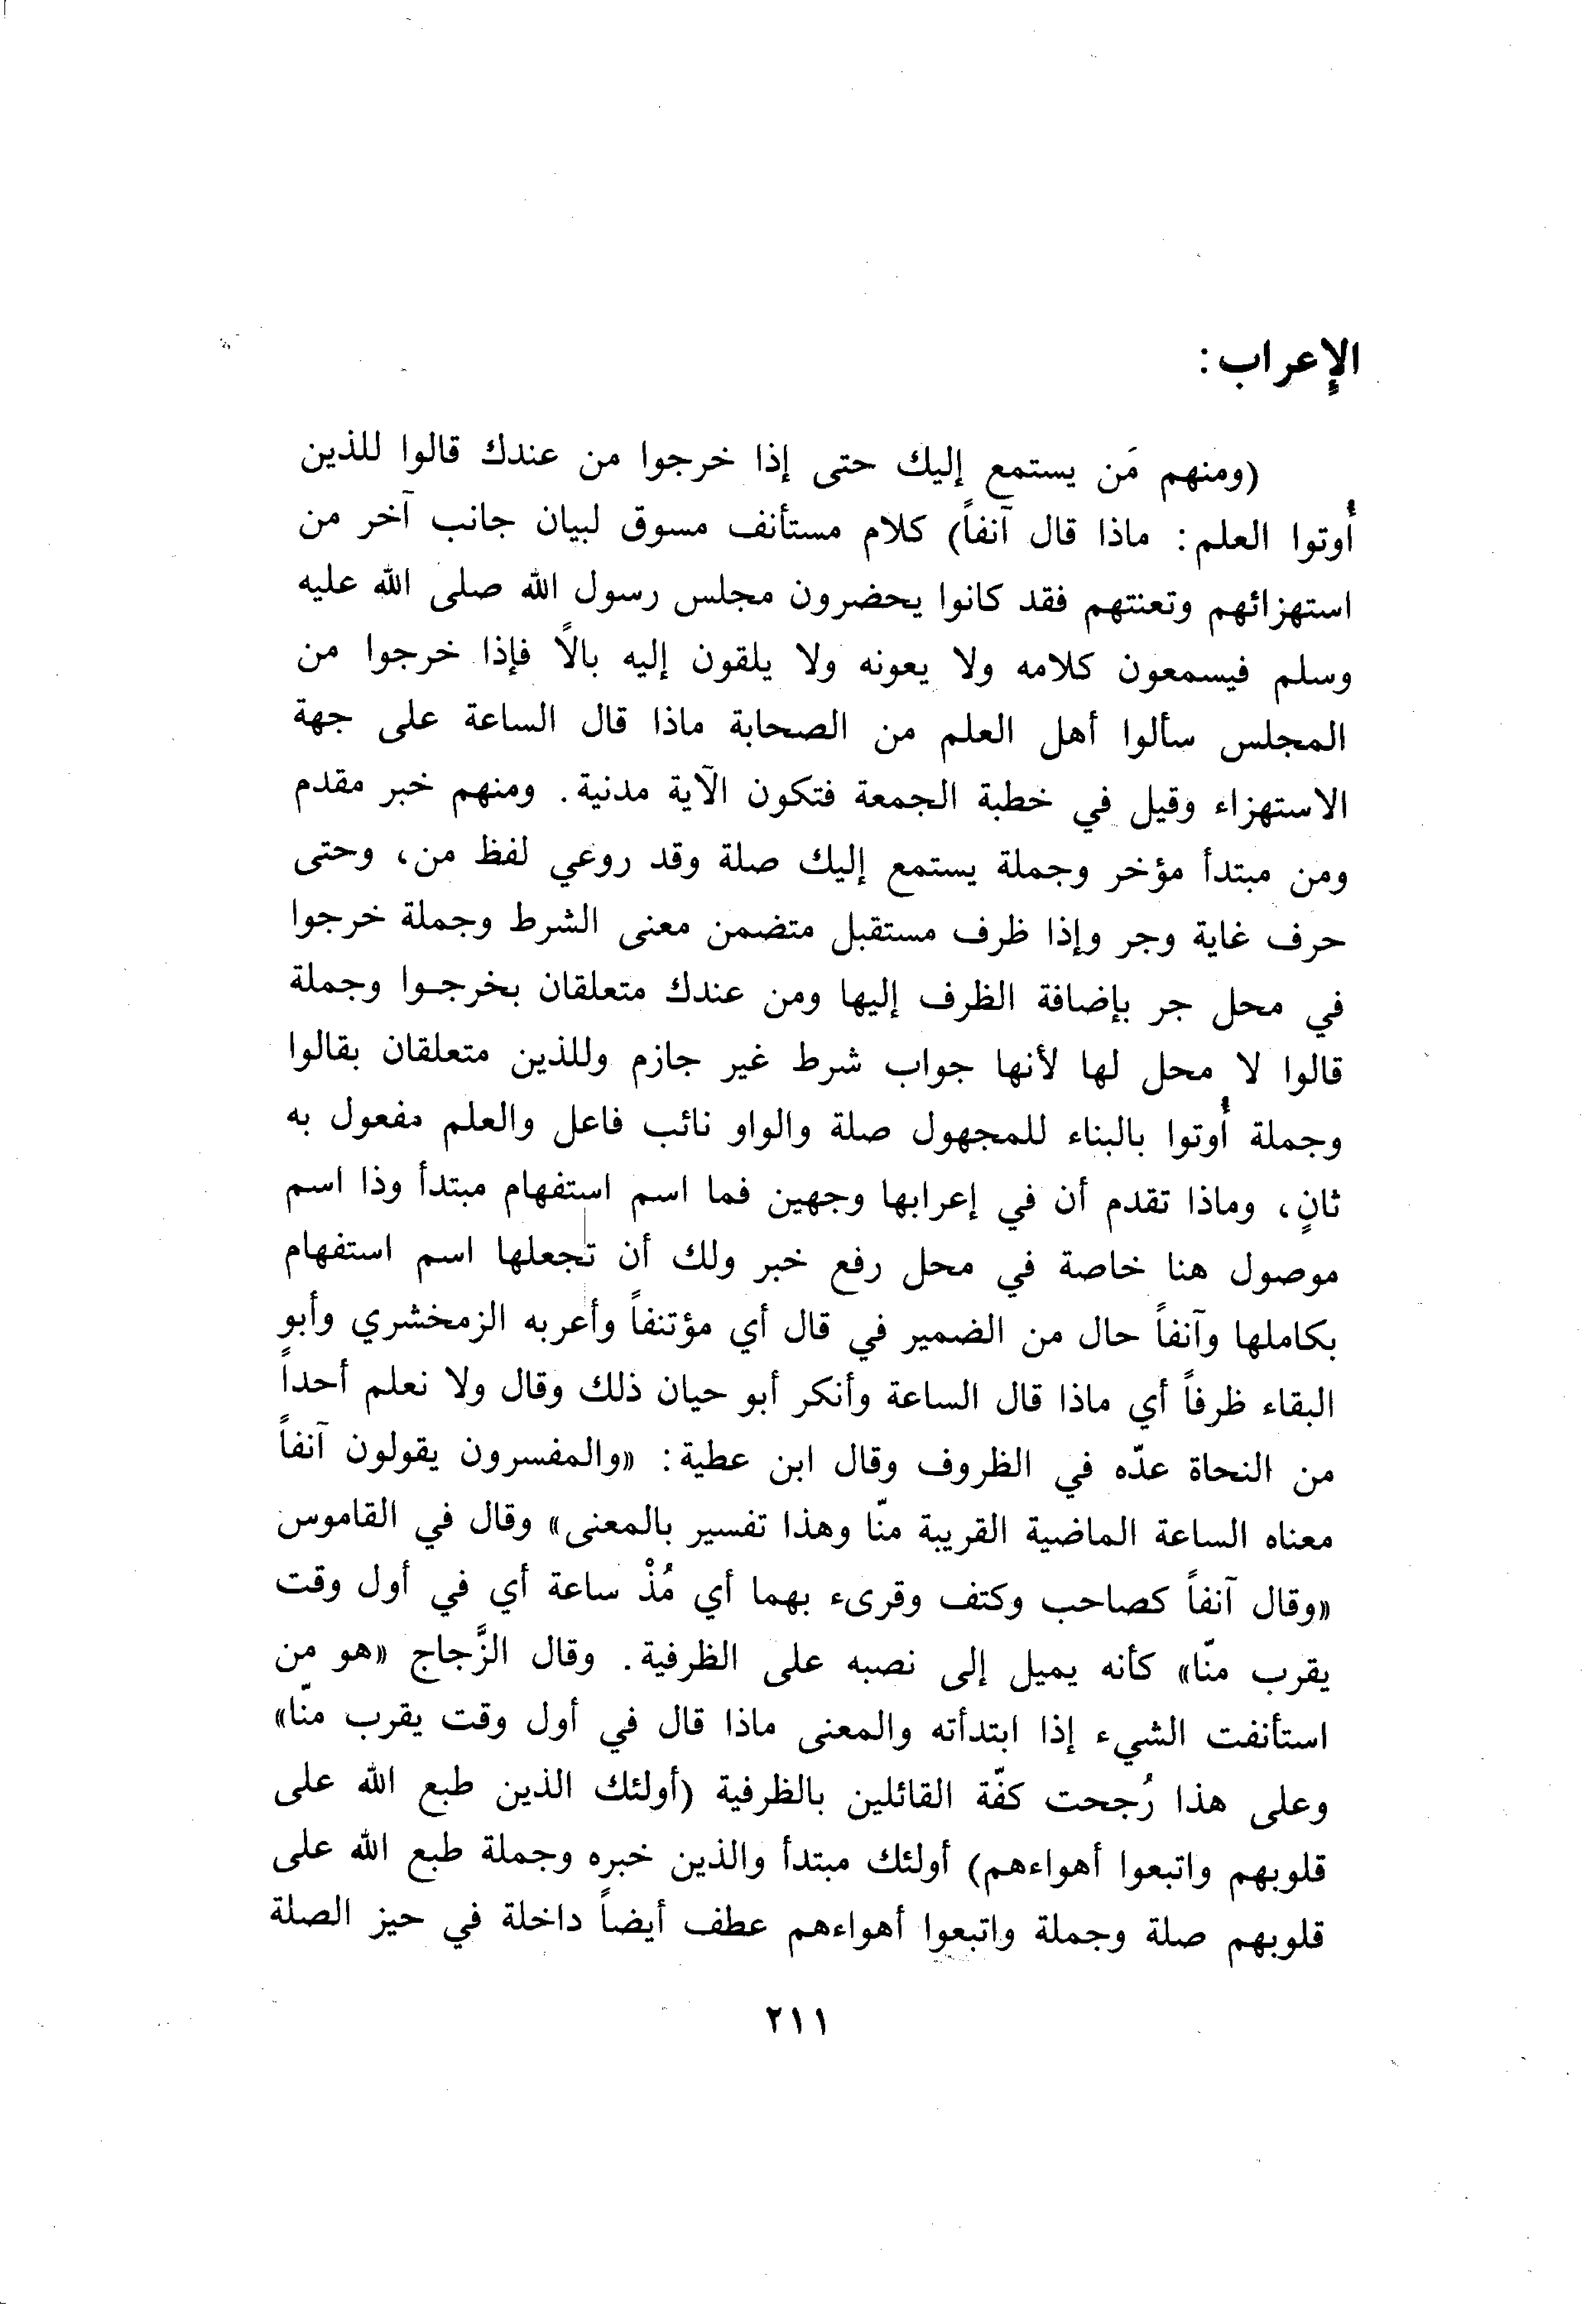 الإعراب :
(ومنهم مَن يستمع إليك حتى إذا خرجوا من عندك قالوا للذين
أُوتوا العلم: ماذا قال آنفاً) كلام مستأنف مسوق لبيان جانب آخر من
استهزائهم وتعنتهم فقد كانوا يحضرون مجلس رسول الله صلى الله عليه
وسلم فيسمعون كلامه ولا يعونه ولا يلقون إليه بالاً فإذا خرجوا من
المجلس سألوا أهل العلم من الصحابة ماذا قال الساعة على جهة
الاستهزاء وقيل في خطبة الجمعة فتكون الآية مدنية. ومنهم خبر مقدم
ومن مبتدأ مؤخر وجملة يستمع إليك صلة وقد روعي لفظ من، وحتى
حرف غاية وجر وإذا ظرف مستقبل متضمن معنى الشرط وجملة خرجوا
في محل جر بإضافة الظرف إليها ومن عندك متعلقان بخرجوا وجملة
قالوا لا محل لها لأنها جواب شرط غير جازم وللذين متعلقان بقالوا
وجملة أُوتوا بالبناء للمجهول صلة والواو نائب فاعل والعلم مفعول به
ثانٍ، وماذا تقدم أن في إعرابها وجهين فما اسم استفهام مبتدأ وذا اسم
موصول هنا خاصة في محل رفع خبر ولك أن تجعلها اسم استفهام
بكاملها وآنفاً حال من الضمير في قال أي مؤتنفاً وأعربه الزمخشري وأبو
البقاء ظرفاً أي ماذا قال الساعة وأنكر أبو حيان ذلك وقال ولا نعلم أحداً
من النحاة عدّه في الظروف وقال ابن عطية: «والمفسرون يقولون آنفاً
معناه الساعة الماضية القريبة منّا وهذا تفسير بالمعنى» وقال في القاموس
«وقال آنفاً كصاحب وكتف وقرىء بهما أي مُذْ ساعة أي في أول وقت
يقرب منّا» كأنه يميل إلى نصبه على الظرفية. وقال الزَّجاج «هو من
استأنفت الشيء إذا ابتدأته والمعنى ماذا قال في أول وقت يقرب منّا»
وعلى هذا رُجحت كفّة القائلين بالظرفية (أولئك الذين طبع الله على
قلوبهم واتبعوا أهواءهم) أولئك مبتدأ والذين خبره وجملة طبع الله على
قلوبهم صلة وجملة واتبعوا أهواءهم عطف أيضاً داخلة في حيز الصلة
٢١١